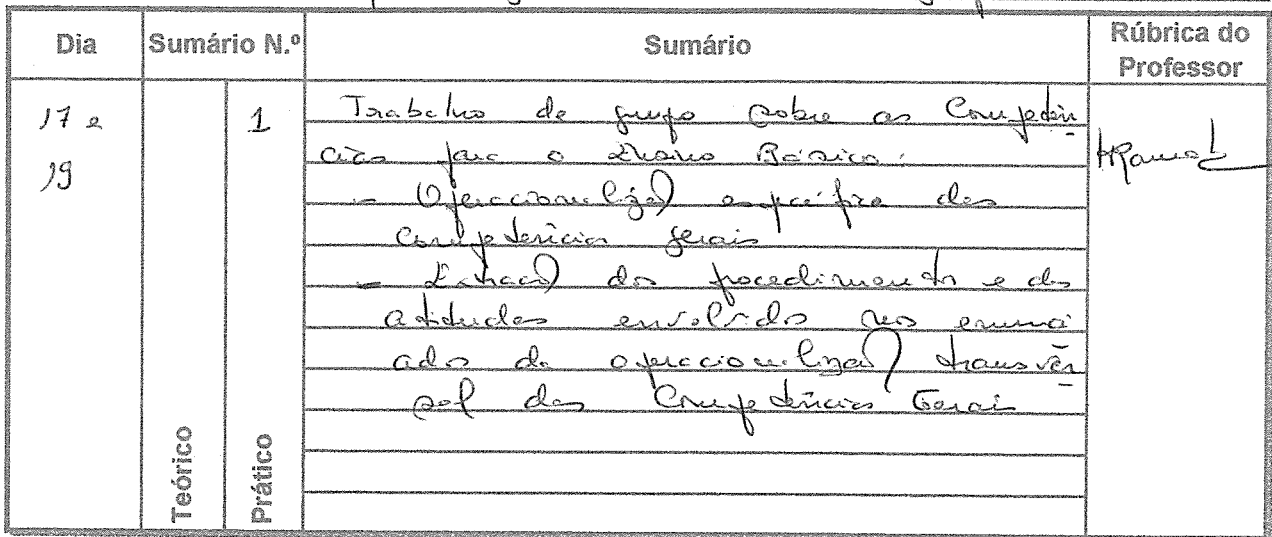 Dia Sumário N.º Sumário Rúbrica do Professor
17 e 1 Trabalho de grupo sobre as Competên
19 cias para o Ensino Básico:
- Operacionalizaç) específica das
Competências gerais
- Extracç) dos procedimentos e das
atitudes envolvidos nos enunci
ados da operacionalizaç) transver
sal das Competências Gerais
Teórico Prático